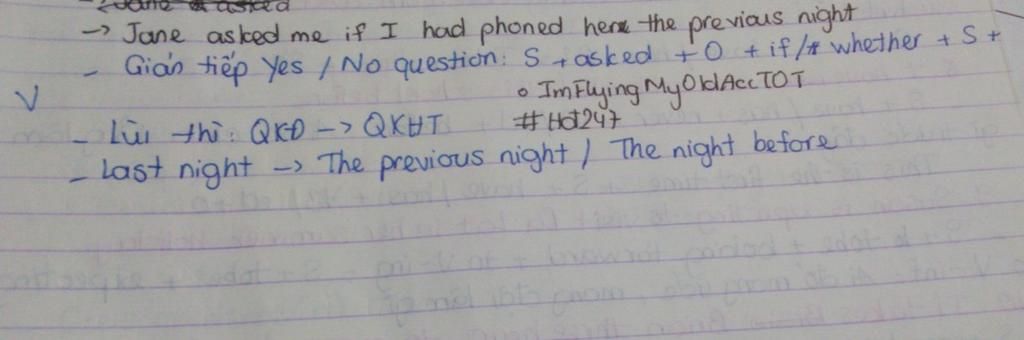 -> Jane asked me if I had phoned her the previous night
- Gián tiếp Yes / No question: S + asked + O + if / whether + S +
V
o ImFlyingMyOldAccTOT
- Lùi thì: QKĐ -> QKHT #Hot247
- Last night -> The previous night / The night before